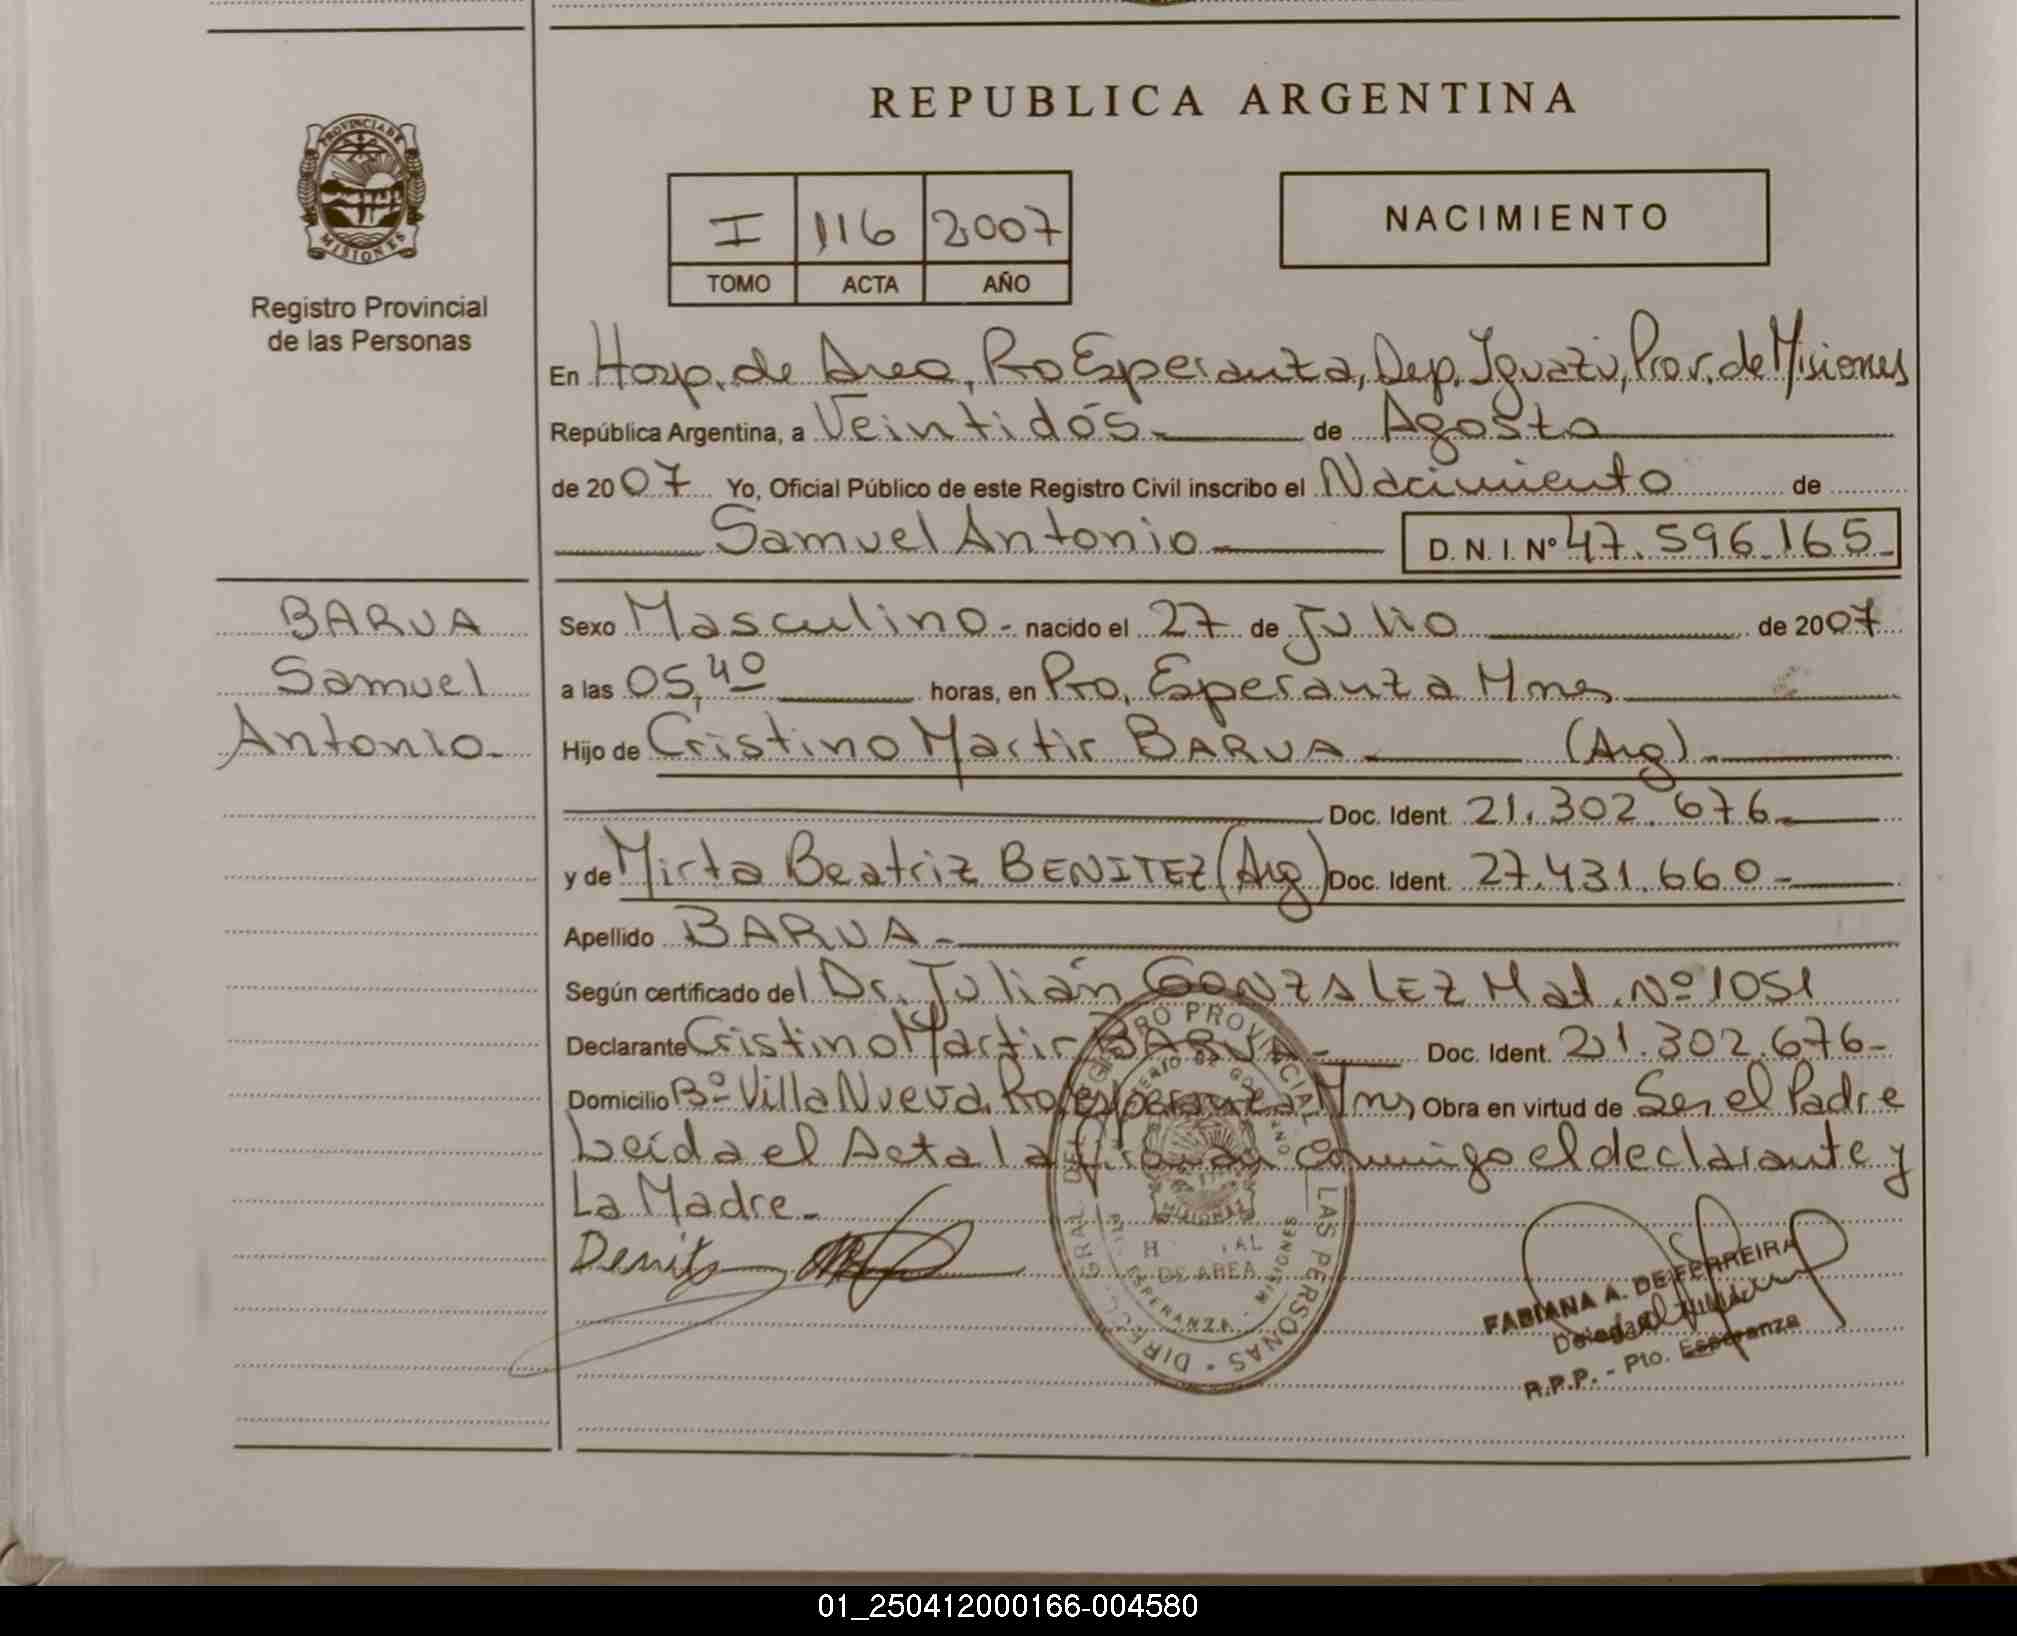 REPUBLICA ARGENTINA
PROVINCIA DE
MISIONES
Registro Provincial
de las Personas
I 116 2007
TOMO ACTA AÑO
NACIMIENTO
En Hosp. de Area, Pto Esperanza, Dep. Iguazú, Prov. de Misiones
República Argentina, a Veintidós de Agosto
de 2007 Yo, Oficial Público de este Registro Civil inscribo el Nacimiento de
Samuel Antonio D. N. I. Nº 47.596.165
BARUA
Samuel
Antonio
Sexo Masculino nacido el 27 de Julio de 2007
a las 05,40 horas, en Pto. Esperanza Mnes
Hijo de Cristino Martir BARUA (Arg)
Doc. Ident. 21.302.676
y de Mirta Beatriz BENITEZ (Arg) Doc. Ident. 27.431.660
Apellido BARUA
Según certificado del Dr. Julián GONZALEZ Mat. Nº 1051
Declarante Cristino Martir BARUA Doc. Ident. 21.302.676
Domicilio Bº Villa Nueva, Pto Esperanza Mnes Obra en virtud de Ser el Padre
Leída el Acta la firman conmigo el declarante y
La Madre
DIREC. GRAL. DEL REGISTRO PROVINCIAL DE LAS PERSONAS
MINISTERIO DE GOBIERNO
MISIONES
DE AREA
ESPERANZA - MISIONES
FABIANA A. DE FERREIRA
R.P.P. - Pto. Esperanza
01_250412000166-004580